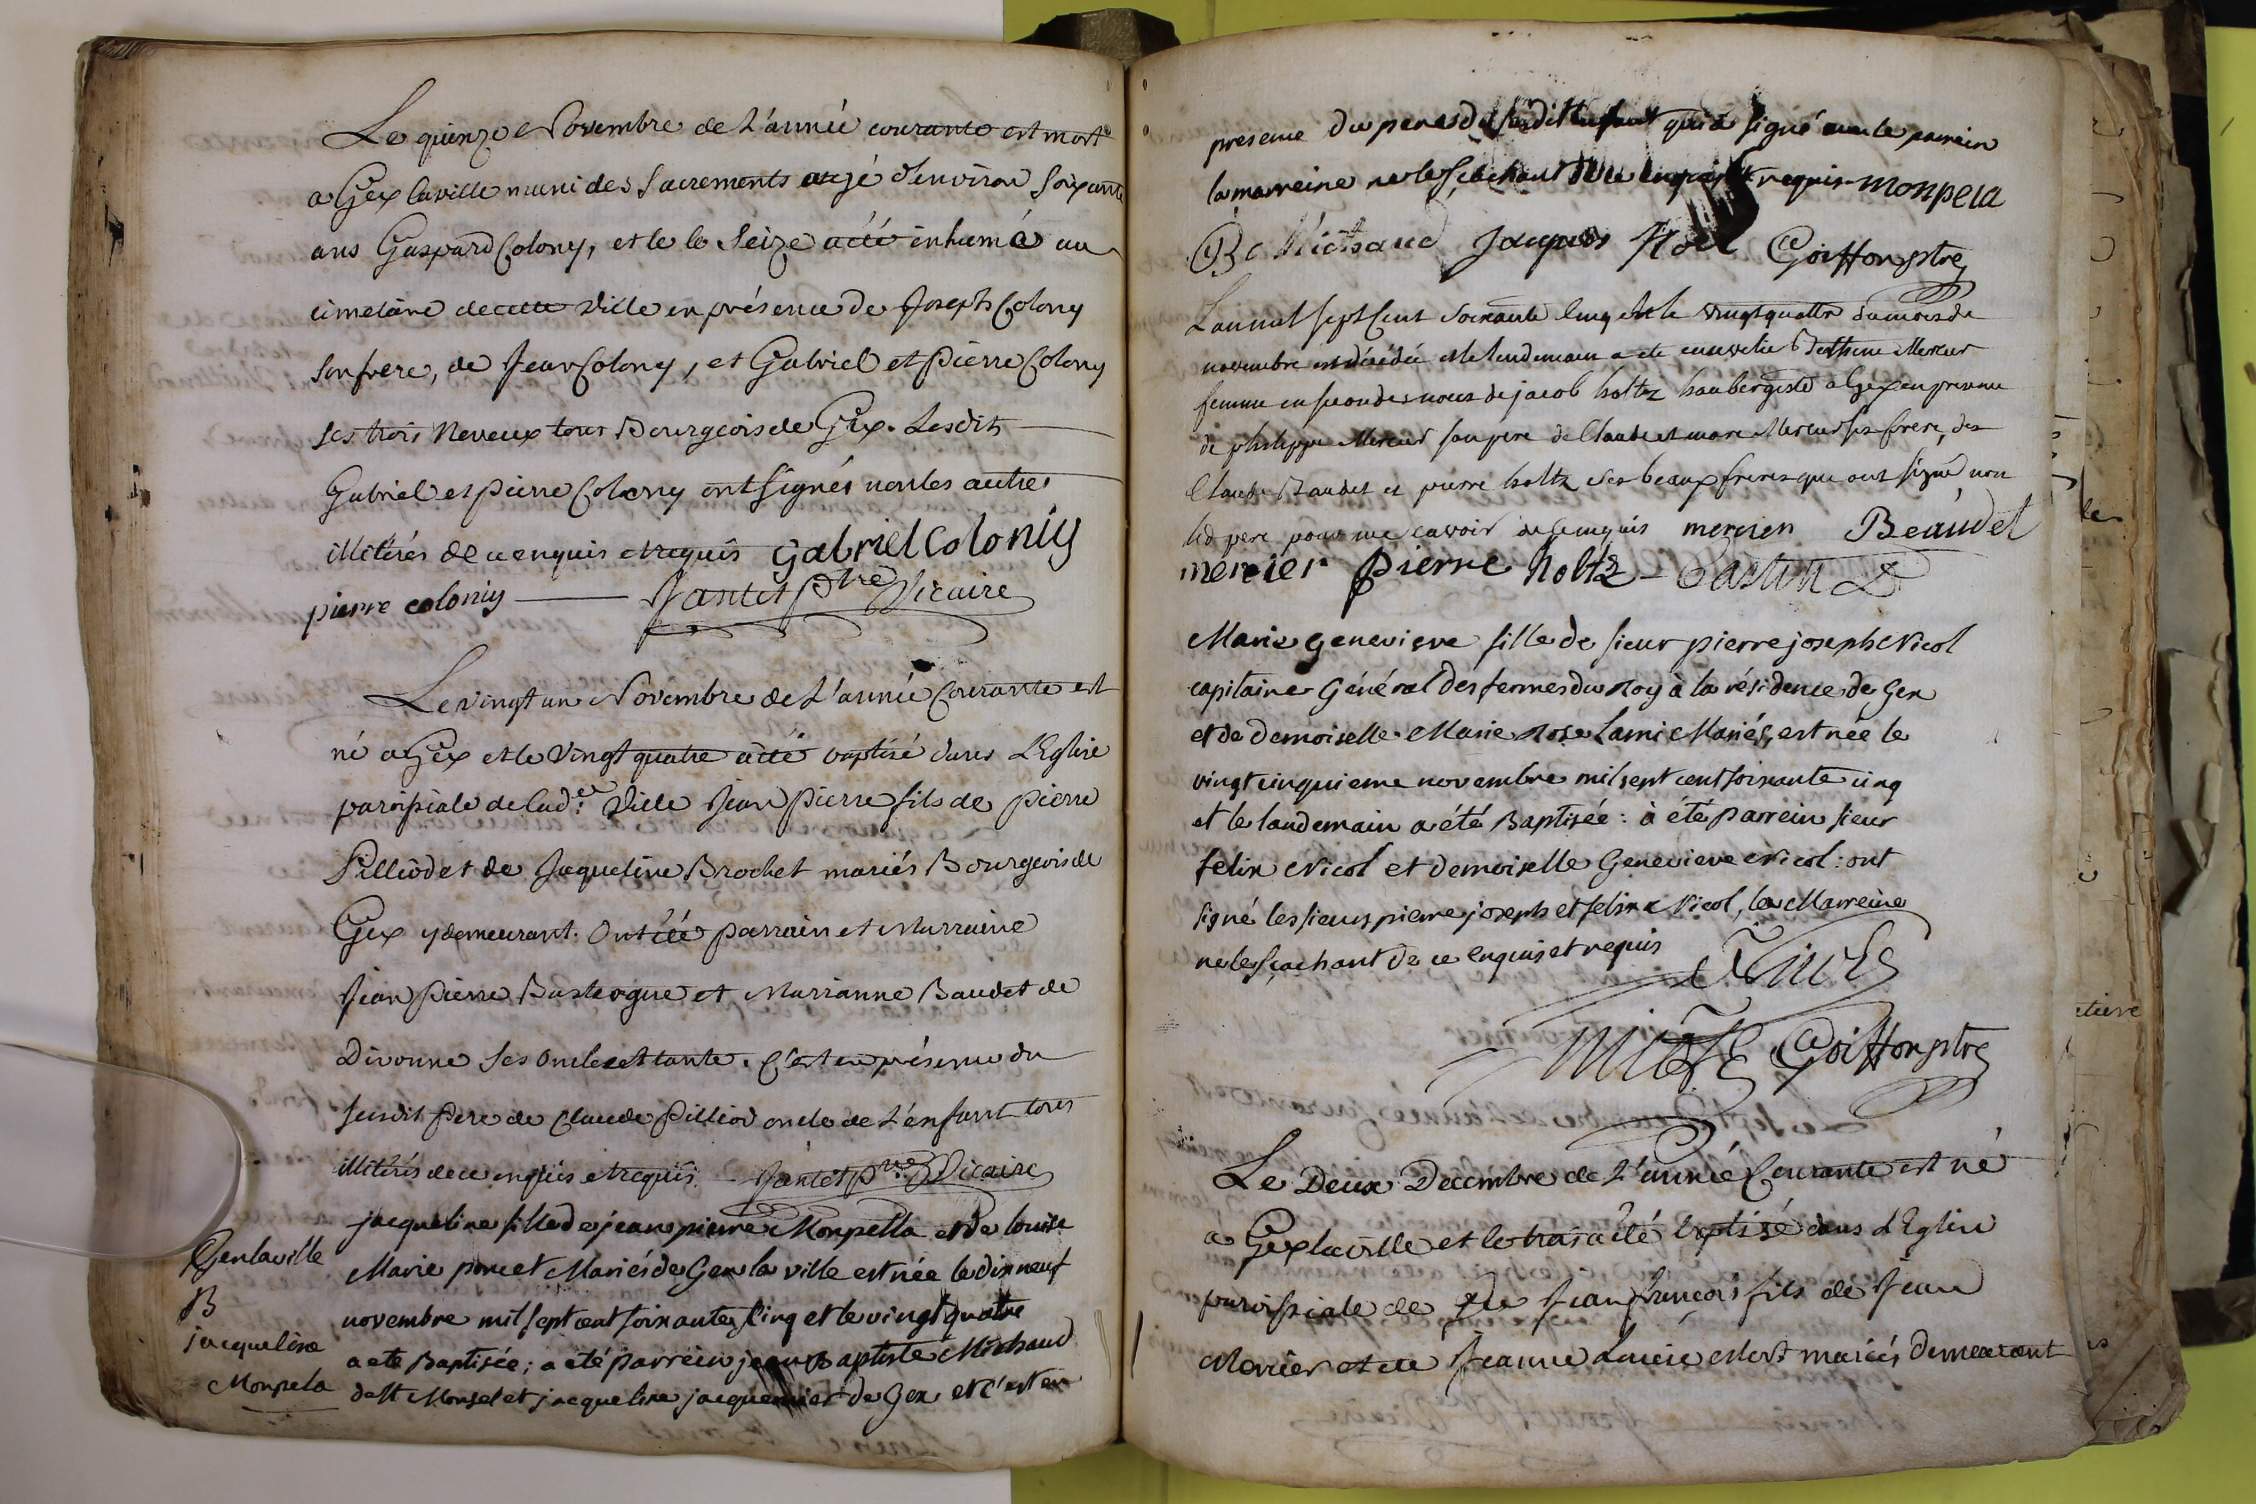 Le quinze Novembre de L'année courante est mort
a Gex la ville muni des Sacrements agé d'environ Soixante
ans Gaspard Colony, et le le Seize a été inhumé au
cimetière de cette Ville en présence de Joseph Colony
son frere, de Jean Colony, et Gabriel et Pierre Colony
ses trois Neveux tous Bourgeois de Gex. Lesdits
Gabriel et pierre Colony ont signés non les autres
illitérés de ce enquis et requis Gabriel Coloniy
pierre coloniy Jantet Ptre Vicaire
Le vingt un Novembre de L'année Courante est
né a Gex et le Vingt quatre a été baptisé dans L'Eglise
paroissiale de lad.e Ville Jean Pierre fils de Pierre
Pilliod et de Jaqueline Brochet mariés Bourgeois de
Gex y demeurant. Ont été parrain et Marraine
Jean Pierre Bastiogne et Marianne Baudet de
Divonne Ses Oncle et tante. C'est en présence du
susdit Pere de Claude Pilliod oncle de L'enfant tous
illitérés de ce enquis et requis. Jantet Ptre Vicaire
Gex la ville
B
jacqueline
Monpela
jacqueline fille de jean pierre Monpella et de louise
Marie poncet Mariés de Gex la ville est née le dix neuf
novembre mil sept cent soixante cinq et le vingt quatre
a ete Baptisée; a été parrein jean Baptiste Michaud
de et jacqueline jacquemier de Gex et c'est en
presence du pere dud susdit Enfant qui a signé avec le parrein
la marreine ne le sçachant de ce enquis et requis monpela
B Michaud Jaques Goiffon ptre
L'an mil sept Cent Soixante Cinq et le vingt quattre du mois de
novembre est décédée et le lendemain a ete ensevelie Mercier
femme en secondes noces de jacob holtz haubergiste a Gex en presence
de philippe Mercier son pere de Claude et marc Mercier ses freres, des
Claude Baudet et pierre holtz ses beaux freres que ont signé non
led pere pour ne savoir de ce enquis mercien Beaudet
mercier Pierre holtz Castin
Marie Genevieve fille de sieur pierre joseph Nicol
capitaine Général des fermes du Roy à la résidence de Gex
et de demoiselle Marie Rose Lami Mariés, est née le
vingt cinquieme novembre mil sept cent soixante cinq
et le landemain a été Baptisée: à été parrein sieur
felix Nicol et demoiselle Genevieve Nicol: ont
signé les sieurs pierre joseph et felix Nicol, la Marreine
ne le sçachant de ce enquis et requis Nicol
Nicole Goiffon ptre
Le Deux Decembre de L'année Courante est né
a Gex la ville et le trois a été baptisé dans L'Eglise
paroissiale de Jean françois fils de Jean
Mercier et de Jeanne Mariés Demeurant